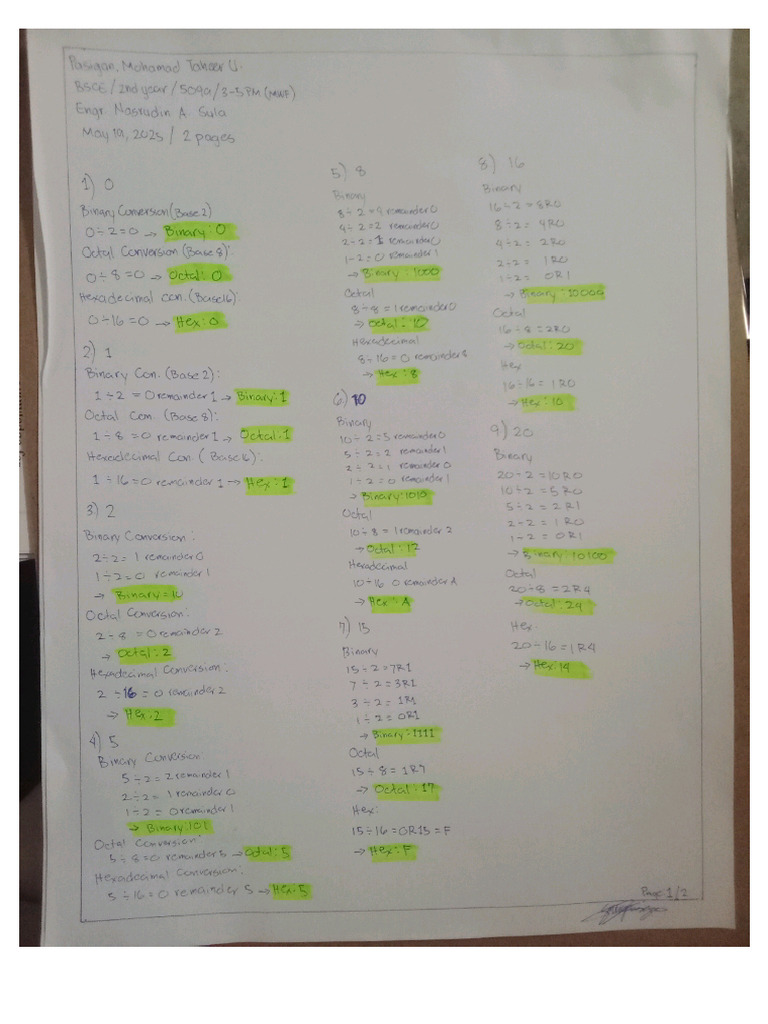 Pasigan, Mohamad Taheer U.
BSCE / 2nd year / 509a / 3-5 PM (MWF)
Engr. Nasrudin A. Sula
May 19, 2025 / 2 pages
1) 0
Binary Conversion (Base 2)
0 ÷ 2 = 0 → Binary: 0
Octal Conversion (Base 8):
0 ÷ 8 = 0 → Octal: 0
Hexadecimal Con. (Base 16):
0 ÷ 16 = 0 → Hex: 0
2) 1
Binary Con. (Base 2):
1 ÷ 2 = 0 remainder 1 → Binary: 1
Octal Con. (Base 8):
1 ÷ 8 = 0 remainder 1 → Octal: 1
Hexadecimal Con. (Base 16):
1 ÷ 16 = 0 remainder 1 → Hex: 1
3) 2
Binary Conversion:
2 ÷ 2 = 1 remainder 0
1 ÷ 2 = 0 remainder 1
→ Binary = 10
Octal Conversion:
2 ÷ 8 = 0 remainder 2
→ Octal: 2
Hexadecimal Conversion:
2 ÷ 16 = 0 remainder 2
→ Hex: 2
4) 5
Binary Conversion:
5 ÷ 2 = 2 remainder 1
2 ÷ 2 = 1 remainder 0
1 ÷ 2 = 0 remainder 1
→ Binary: 101
Octal Conversion:
5 ÷ 8 = 0 remainder 5 → Octal: 5
Hexadecimal Conversion:
5 ÷ 16 = 0 remainder 5 → Hex: 5
5) 8
Binary
8 ÷ 2 = 4 remainder 0
4 ÷ 2 = 2 remainder 0
2 ÷ 2 = 1 remainder 0
1 ÷ 2 = 0 remainder 1
→ Binary: 1000
Octal
8 ÷ 8 = 1 remainder 0
→ Octal: 10
Hexadecimal
8 ÷ 16 = 0 remainder 8
→ Hex: 8
6) 10
Binary
10 ÷ 2 = 5 remainder 0
5 ÷ 2 = 2 remainder 1
2 ÷ 2 = 1 remainder 0
1 ÷ 2 = 0 remainder 1
→ Binary: 1010
Octal
10 ÷ 8 = 1 remainder 2
→ Octal: 12
Hexadecimal
10 ÷ 16 0 remainder A
→ Hex: A
7) 15
Binary
15 ÷ 2 = 7R1
7 ÷ 2 = 3R1
3 ÷ 2 = 1R1
1 ÷ 2 = 0R1
→ Binary: 1111
Octal
15 ÷ 8 = 1R7
→ Octal: 17
Hex:
15 ÷ 16 = 0R15 = F
→ Hex: F
8) 16
Binary
16 ÷ 2 = 8R0
8 ÷ 2 = 4R0
4 ÷ 2 = 2R0
2 ÷ 2 = 1R0
1 ÷ 2 = 0R1
→ Binary: 10000
Octal
16 ÷ 8 = 2R0
→ Octal: 20
Hex
16 ÷ 16 = 1R0
→ Hex: 10
9) 20
Binary
20 ÷ 2 = 10R0
10 ÷ 2 = 5R0
5 ÷ 2 = 2R1
2 ÷ 2 = 1R0
1 ÷ 2 = 0R1
→ Binary: 10100
Octal
20 ÷ 8 = 2R4
→ Octal: 24
Hex:
20 ÷ 16 = 1R4
→ Hex: 14
Page 1/2